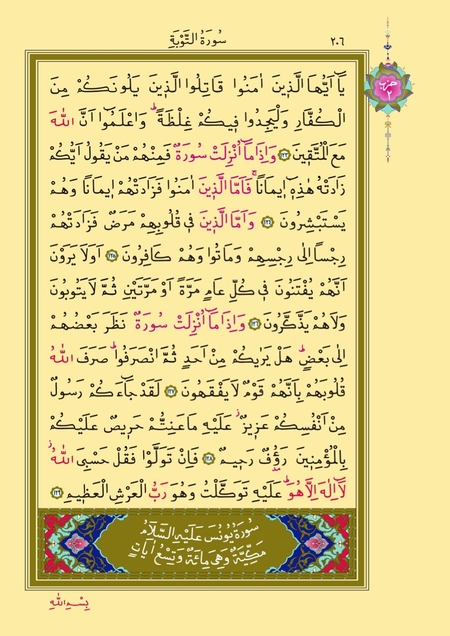 ٢٠٦
سُورَةُ التَّوْبَةِ
حزب
٢
يَٓا اَيُّهَا الَّذ۪ينَ اٰمَنُوا قَاتِلُوا الَّذ۪ينَ يَلُونَكُمْ مِنَ
الْكُفَّارِ وَلْيَجِدُوا ف۪يكُمْ غِلْظَةًۜ وَاعْلَمُٓوا اَنَّ اللّٰهَ
مَعَ الْمُتَّق۪ينَ ﴿١٢٣﴾ وَاِذَا مَٓا اُنْزِلَتْ سُورَةٌ فَمِنْهُمْ مَنْ يَقُولُ اَيُّكُمْ
زَادَتْهُ هٰذِه۪ٓ ا۪يمَانًاۚ فَاَمَّا الَّذ۪ينَ اٰمَنُوا فَزَادَتْهُمْ ا۪يمَانًا وَهُمْ
يَسْتَبْشِرُونَ ﴿١٢٤﴾ وَاَمَّا الَّذ۪ينَ ف۪ي قُلُوبِهِمْ مَرَضٌ فَزَادَتْهُمْ
رِجْسًا اِلٰى رِجْسِهِمْ وَمَاتُوا وَهُمْ كَافِرُونَ ﴿١٢٥﴾ اَوَلَا يَرَوْنَ
اَنَّهُمْ يُفْتَنُونَ ف۪ي كُلِّ عَامٍ مَرَّةً اَوْ مَرَّتَيْنِ ثُمَّ لَا يَتُوبُونَ
وَلَا هُمْ يَذَّكَّرُونَ ﴿١٢٦﴾ وَاِذَا مَٓا اُنْزِلَتْ سُورَةٌ نَظَرَ بَعْضُهُمْ
اِلٰى بَعْضٍۜ هَلْ يَرٰيكُمْ مِنْ اَحَدٍ ثُمَّ انْصَرَفُواۜ صَرَفَ اللّٰهُ
قُلُوبَهُمْ بِاَنَّهُمْ قَوْمٌ لَا يَفْقَهُونَ ﴿١٢٧﴾ لَقَدْ جَٓاءَكُمْ رَسُولٌ
مِنْ اَنْفُسِكُمْ عَز۪يزٌ عَلَيْهِ مَا عَنِتُّمْ حَر۪يصٌ عَلَيْكُمْ
بِالْمُؤْمِن۪ينَ رَؤُ۫فٌ رَح۪يمٌ ﴿١٢٨﴾ فَاِنْ تَوَلَّوْا فَقُلْ حَسْبِيَ اللّٰهُۘ
لَٓا اِلٰهَ اِلَّا هُوَۜ عَلَيْهِ تَوَكَّلْتُ وَهُوَ رَبُّ الْعَرْشِ الْعَظ۪يمِ ﴿١٢٩﴾
سُورَةُ يُونُسَ عَلَيْهِ السَّلَامُ
مَكِّيَّةٌ وَهِيَ مِائَةٌ وَتِسْعُ اٰيَاتٍ
بِسْمِ اللّٰهِ